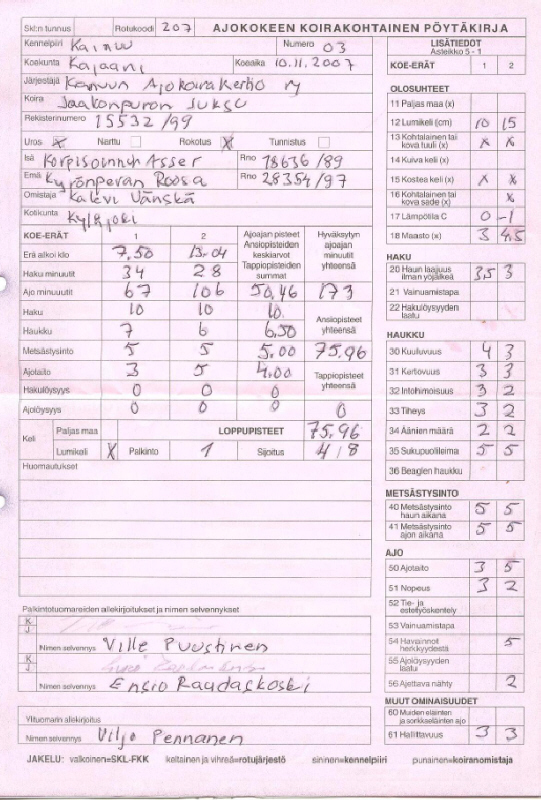 Skl:n tunnus Rotukoodi 207 AJOKOKEEN KOIRAKOHTAINEN PÖYTÄKIRJA
Kennelpiiri Kainuu Numero 03
Koekunta Kajaani Koeaika 10.11.2007
Järjestäjä Kainuun Ajokoirakerho ry
Koira Jaakonpuron Juksu
Rekisterinumero 15532/99
Uros X Narttu Rokotus X Tunnistus
Isä Korpisoinnun Asser Rno 18636/89
Emä Kyrönperän Roosa Rno 28354/97
Omistaja Kalevi Vänskä
Kotikunta Kylmäjoki
KOE-ERÄT 1 2 Ajoajan pisteet Ansiopisteiden keskiarvot Tappiopisteiden summat Hyväksytyn ajoajan minuutit yhteensä
Erä alkoi klo 7.50 13.04
Haku minuutit 34 28
Ajo minuuutit 67 106 50,46 173
Haku 10 10 10 Ansiopisteet yhteensä
Haukku 7 6 6,50
Metsästysinto 5 5 5.00 75.96
Ajotaito 3 5 4.00 Tappiopisteet yhteensä
Hakulöysyys 0 0 0
Ajolöysyys 0 0 0 0
Keli Paljas maa LOPPUPISTEET 75.96
Lumikeli X Palkinto 1 Sijoitus 4/8
Huomautukset
Palkintotuomareiden allekirjoitukset ja nimen selvennykset
K.
J.
Nimen selvennys Ville Puustinen
K.
J.
Nimen selvennys Ensio Raudaskoski
Ylituomarin allekirjoitus
Nimen selvennys Viljo Pennanen
LISÄTIEDOT
Asteikko 5 - 1
KOE-ERÄT 1 2
OLOSUHTEET
11 Paljas maa (x)
12 Lumikeli (cm) 10 15
13 Kohtalainen tai kova tuuli (x) x x
14 Kuiva keli (x)
15 Kostea keli (x) x x
16 Kohtalainen tai kova sade (x) x
17 Lämpötila C 0 -1
18 Maasto (x) 3 4,5
HAKU
20 Haun laajuus ilman yöjälkeä 3,5 3
21 Vainuamistapa
22 Hakulöysyyden laatu
HAUKKU
30 Kuuluvuus 4 3
31 Kertovuus 3 3
32 Intohimoisuus 3 2
33 Tiheys 3 2
34 Äänien määrä 2 2
35 Sukupuolileima 5 5
36 Beaglen haukku
METSÄSTYSINTO
40 Metsästysinto haun aikana 5 5
41 Metsästysinto ajon aikana 5 5
AJO
50 Ajotaito 3 5
51 Nopeus 3 2
52 Tie- ja estetyöskentely
53 Vainuamistapa
54 Havainnot herkkyydestä 5
55 Ajolöysyyden laatu
56 Ajettava nähty 2
MUUT OMINAISUUDET
60 Muiden eläinten ja sorkkaeläinten ajo
61 Hallittavuus 3 3
JAKELU: valkoinen=SKL-FKK keltainen ja vihreä=rotujärjestö sininen=kennelpiiri punainen=koiranomistaja